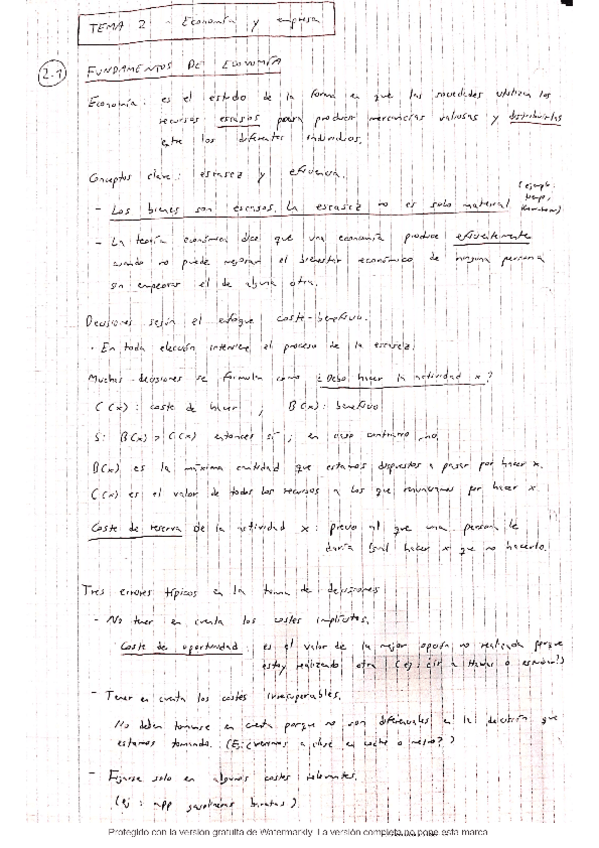 TEMA 2 - Economía y empresa
2.1 FUNDAMENTOS DE ECONOMÍA
Economía: es el estudio de la forma en que las sociedades utilizan los
recursos escasos para producir mercancías valiosas y distribuirlas
entre los diferentes individuos.
Conceptos clave: escasez y eficiencia.
- Los bienes son escasos. La escasez no es solo material (ejemplo:
tiempo,
- La teoría económica dice que una economía produce eficientemente
cuando no puede mejorar el bienestar económico de ninguna persona
sin empeorar el de alguna otra.
Decisiones según el enfoque coste-beneficio.
· En toda elección interviene el proceso de la escasez.
Muchas decisiones se formulan como ¿Debo hacer la actividad x?
C(x): coste de hacer ; B(x): beneficio
Si B(x) > C(x) entonces sí ; en caso contrario, no.
B(x) es la máxima cantidad que estamos dispuestos a pagar por hacer x.
C(x) es el valor de todos los recursos a los que renunciamos por hacer x.
Coste de reserva de la actividad x: precio al que una persona le
daría igual hacer x que no hacerlo.
Tres errores típicos en la toma de decisiones
- No tener en cuenta los costes implícitos.
Coste de oportunidad: es el valor de la mejor opción no realizada porque
estoy realizando otra (ej: ¿ir a o estudiar?)
- Tener en cuenta los costes irrecuperables.
No deben tomarse en cuenta porque no son diferenciales en la decisión que
estamos tomando. (Ej: ¿venimos a clase en coche o metro?)
- Fijarse solo en algunos costes relevantes.
(ej: app gasolineras baratas)
Protegido con la versión gratuita de Watermarkly. La versión completa no pone esta marca